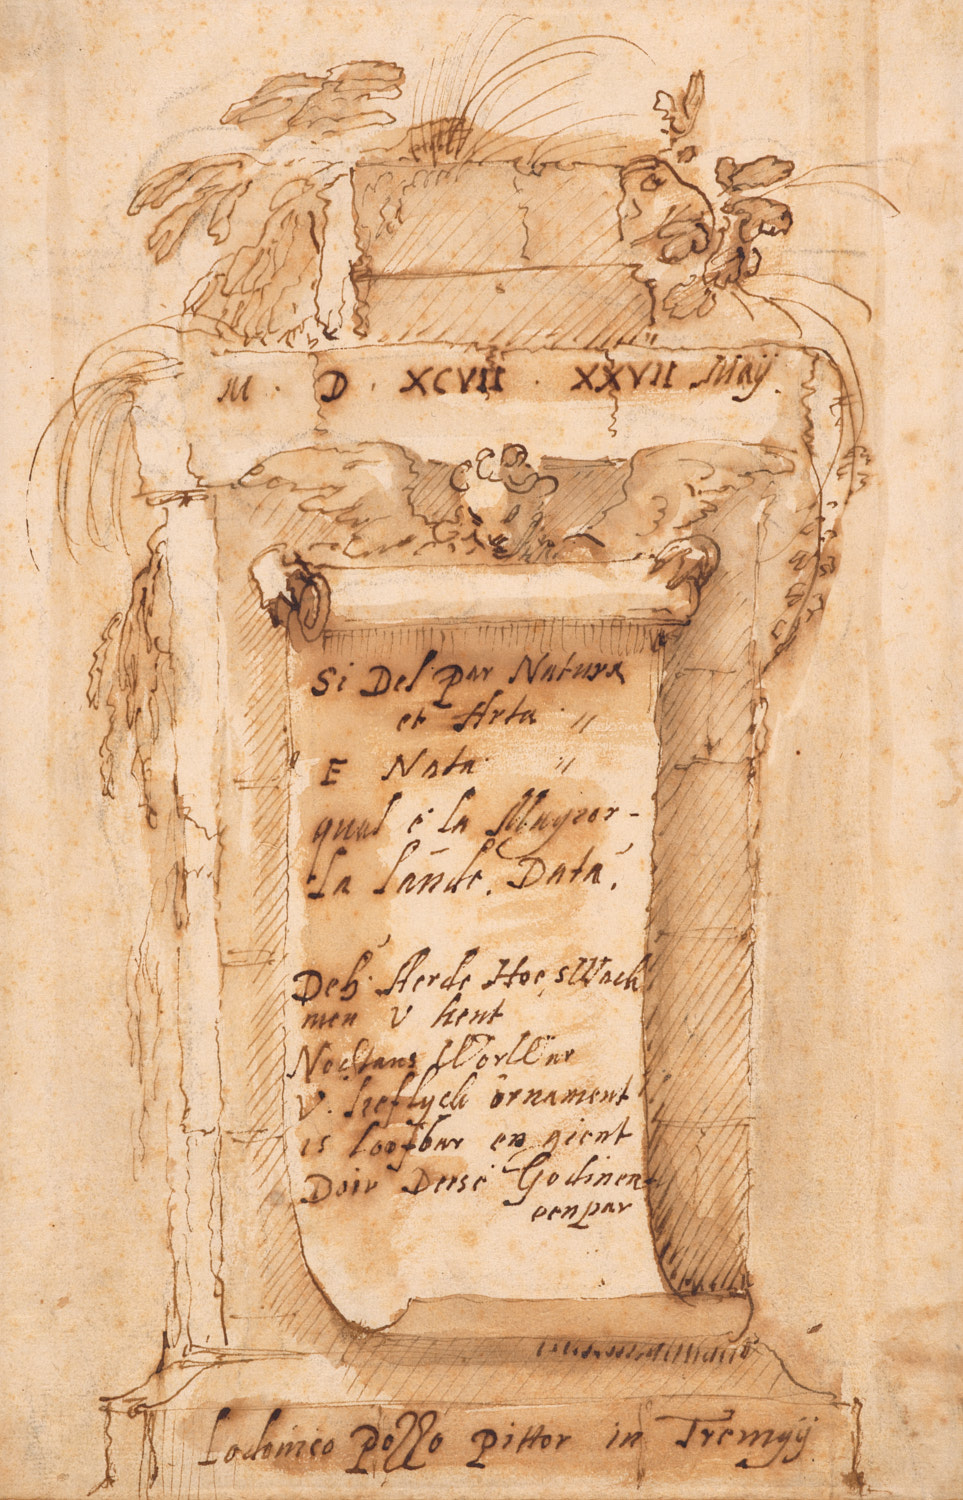 M · D · XCVII · XXVII Maÿ.
Si Del par Natura
et Arta "
E Nata "
qual è la Magior-
La lande. Data.
Deh Aerde Hoe swach
men V kent
Nochtans WorWar
V. lieflych ornament
is loofbar en gient
Doir Deese Godinen
eenpar
Lodovico Pozzo Pittor in Tremyÿ